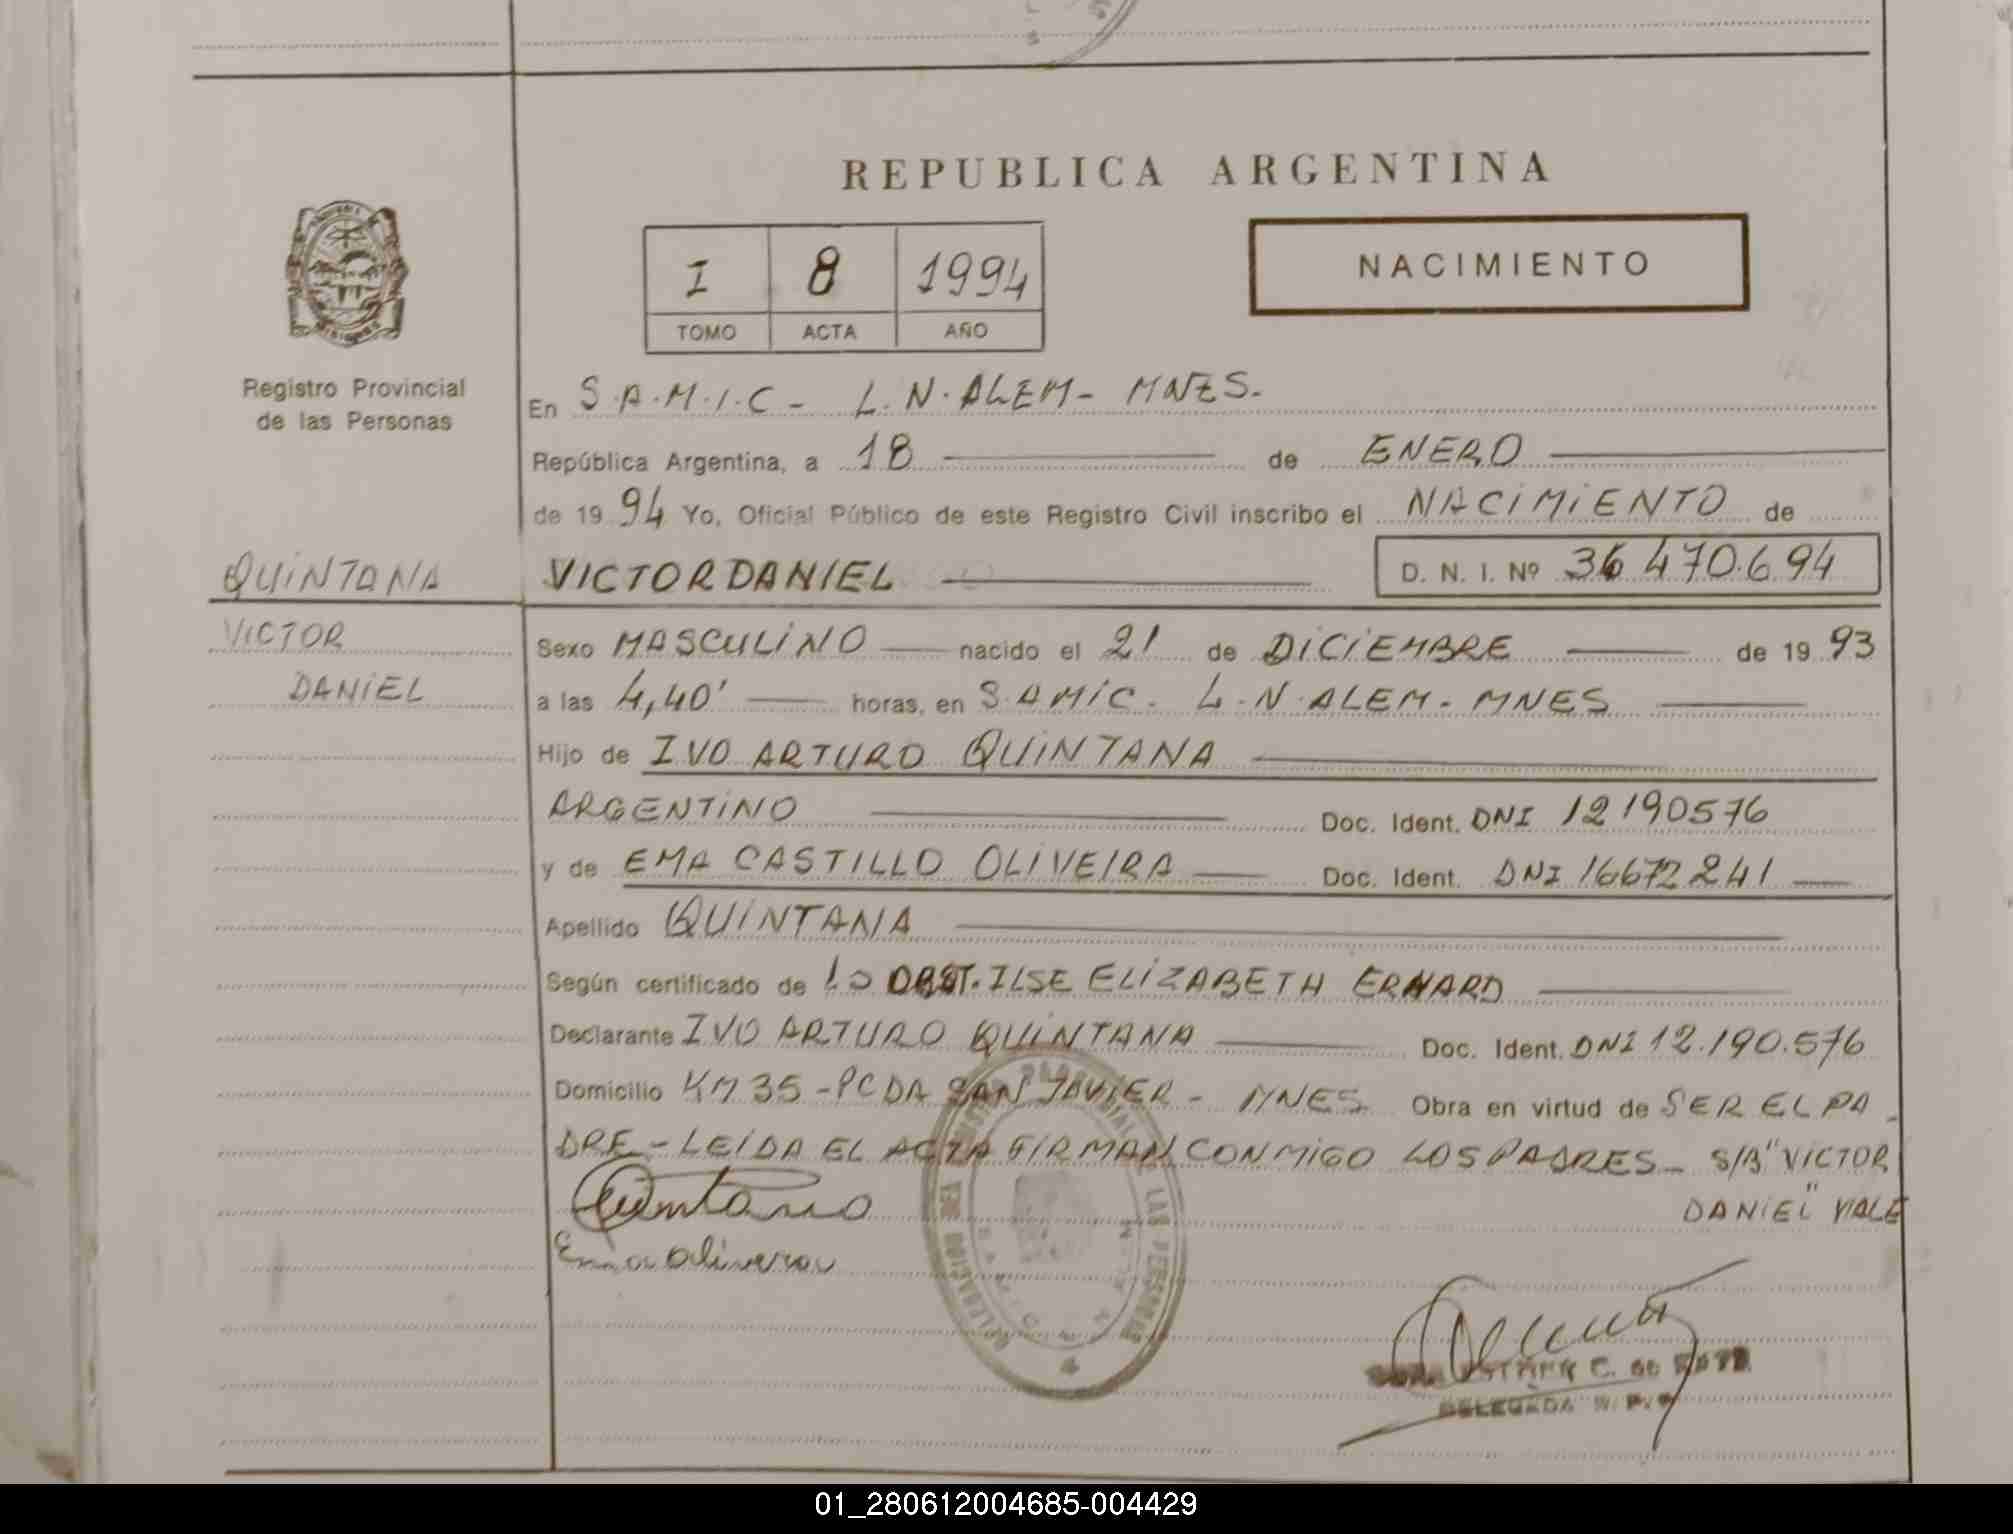 REPUBLICA ARGENTINA
I 8 1994
TOMO ACTA AÑO
NACIMIENTO
Registro Provincial
de las Personas
En S.A.M.I.C - L.N.ALEM - MNES.
República Argentina, a 18 de ENERO
de 19 94 Yo, Oficial Público de este Registro Civil inscribo el NACIMIENTO de
QUINTANA VICTOR DANIEL D. N. I. Nº 36 470.694
VICTOR
DANIEL
Sexo MASCULINO nacido el 21 de DICIEMBRE de 19 93
a las 4,40' horas, en S.AMIC. L.N.ALEM - MNES
Hijo de IVO ARTURO QUINTANA
ARGENTINO Doc. Ident. DNI 12190576
y de EMA CASTILLO OLIVEIRA Doc. Ident. DNI 16672241
Apellido QUINTANA
Según certificado de LA OBST. ILSE ELIZABETH ERHARD
Declarante IVO ARTURO QUINTANA Doc. Ident. DNI 12.190.576
Domicilio KM 35 - PCDA SAN JAVIER - MNES Obra en virtud de SER EL PA
DRE - LEIDA EL ACTA FIRMAN CONMIGO LOS PADRES - S/B "VICTOR
DANIEL" VALE
Quintana
Ema Oliveira
DELEGACION DE LAS PERSONAS
DELEGADA R. P. P.
01_280612004685-004429